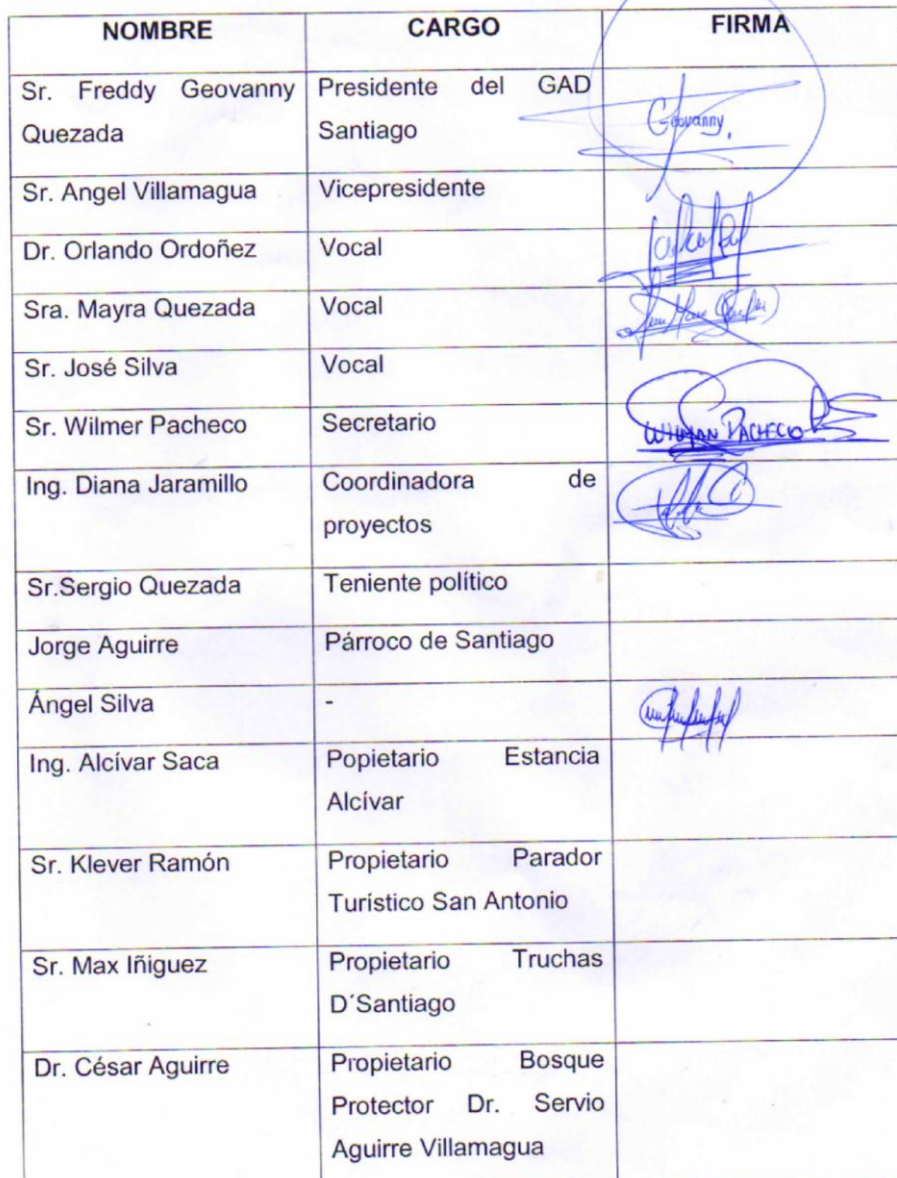 NOMBRE CARGO FIRMA
Sr. Freddy Geovanny Presidente del GAD
Quezada Santiago Geovanny
Sr. Angel Villamagua Vicepresidente
Dr. Orlando Ordoñez Vocal
Sra. Mayra Quezada Vocal
Sr. José Silva Vocal
Sr. Wilmer Pacheco Secretario PACHECO
Ing. Diana Jaramillo Coordinadora de
proyectos
Sr.Sergio Quezada Teniente político
Jorge Aguirre Párroco de Santiago
Ángel Silva -
Ing. Alcívar Saca Popietario Estancia
Alcívar
Sr. Klever Ramón Propietario Parador
Turístico San Antonio
Sr. Max Iñiguez Propietario Truchas
D´Santiago
Dr. César Aguirre Propietario Bosque
Protector Dr. Servio
Aguirre Villamagua